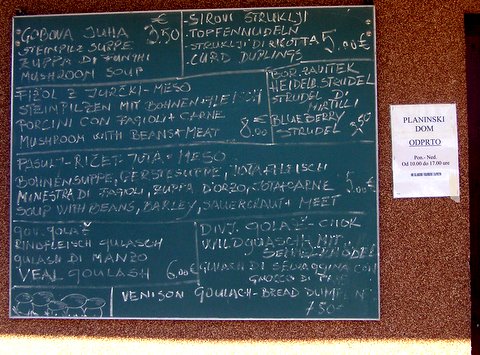 GOBOVA JUHA
€
3.50
STEINPILZ SUPPE
ZUPPA DI FUNGHI
MUSHROOM SOUP
- SIROVI ŠTRUKLJI
- TOPFENNUDELN
- STRUKLJI DI RICOTTA 5,00 €
- CURD DUPLINGS
FIŽOL Z JURČKI - MESO
STEINPILZEN MIT BOHNEN
PORCINI CON FAGIOLI + CARNE
MUSHROOM WITH BEANS + MEAT
8.00 €
BOR. ZAVITEK
HEIDELB. STRUDEL
STRUDEL DI
MIRTILLI
BLUEBERRY
STRUDEL
PASULJ - RIČET - JOTA + MESO
BOHNENSUPPE, GERSTESUPPE, JOTA + FLEISCH
MINESTRA DI FAGIOLI, ZUPPA D'ORZO, JOTA + CARNE
SOUP WITH BEANS, BARLEY, SAUERCRAUT + MEET
5.00 €
GOV. GOLAŽ
RINDFLEISCH GULASCH
GULASH DI MANZO
VEAL GOULASH 6.00 €
DIVJ. GOLAŽ - CMOK
WILDGULASCH MIT
GULASH DI SELVAGGINA CON
GNOCCO DI PANE
VENISON GOULACH - BREAD DUMPLIN
7.50
PLANINSKI
DOM
ODPRTO
Pon.- Ned.
Od 10.00 do 17.00 ure